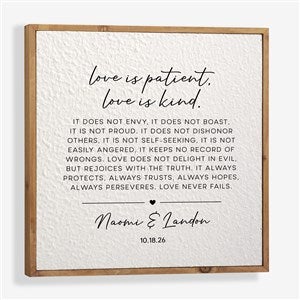 love is patient,
love is kind.
IT DOES NOT ENVY, IT DOES NOT BOAST,
IT IS NOT PROUD. IT DOES NOT DISHONOR
OTHERS, IT IS NOT SELF-SEEKING, IT IS NOT
EASILY ANGERED, IT KEEPS NO RECORD OF
WRONGS. LOVE DOES NOT DELIGHT IN EVIL,
BUT REJOICES WITH THE TRUTH. IT ALWAYS
PROTECTS, ALWAYS TRUSTS, ALWAYS HOPES,
ALWAYS PERSEVERES. LOVE NEVER FAILS.
Naomi & Landon
10.18.26